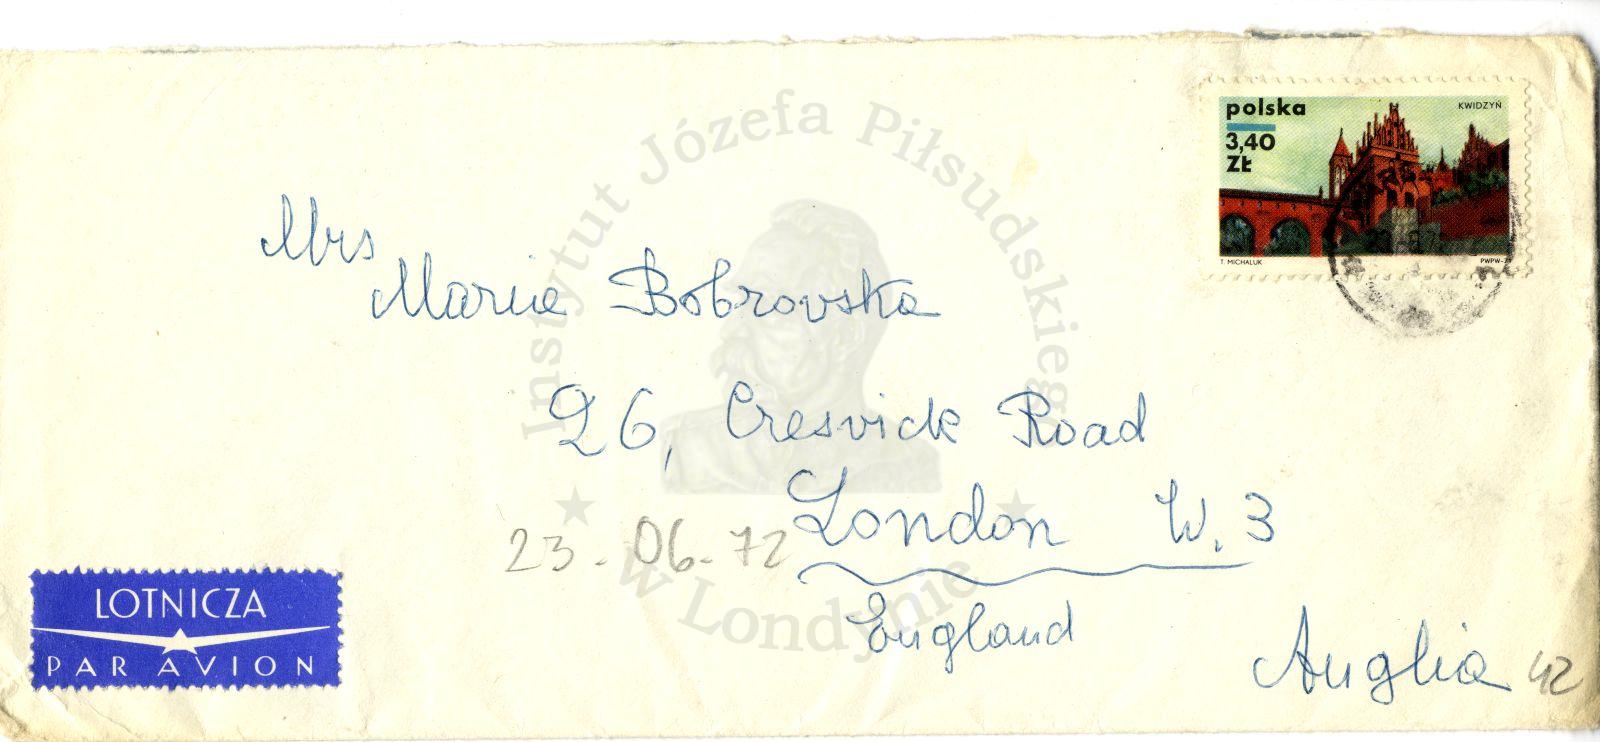 polska
KWIDZYŃ
3,40
ZŁ
T. MICHALUK
Instytut Józefa Piłsudskiego
w Londynie
Mrs
Maria Bobrovska
26, Cresvick Road
London W. 3
23-06-72
England
Anglia 42
LOTNICZA
PAR AVION